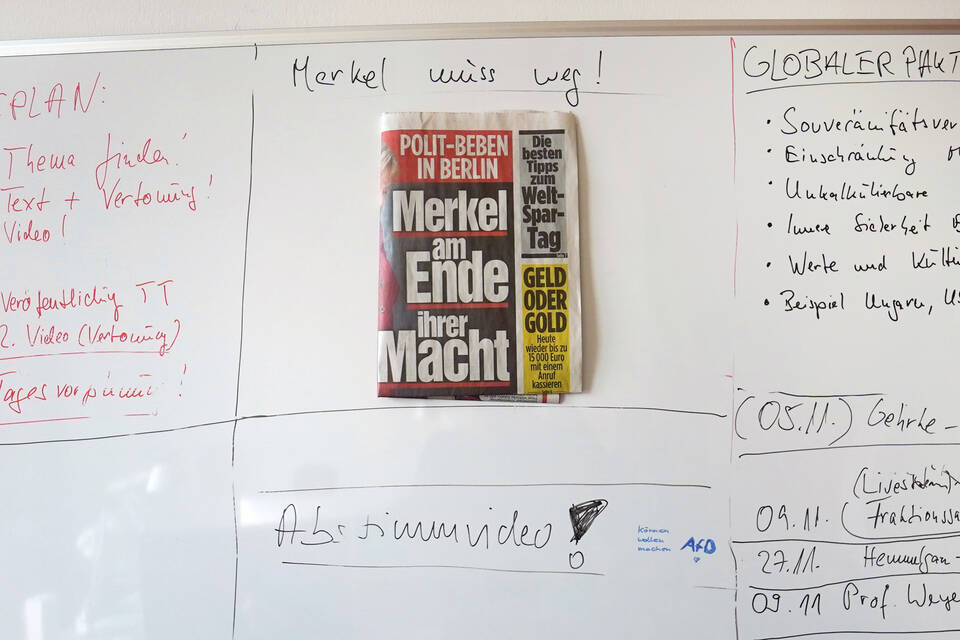 PLAN:
Thema finden!
Text + Vertonung!
Video!
Veröffentlichung TT
2. Video (Vertonung)
Merkel muss weg!
POLIT-BEBEN
IN BERLIN
Merkel
am
Ende
ihrer
Macht
Die
besten
Tipps
zum
Welt-
Spar-
Tag
GELD
ODER
GOLD
Heute
wieder bis zu
15 000 Euro
mit einem
Anruf
kassieren
Abstimmvideo!
können
wollen
machen
AfD
GLOBALER PAKT
• Souveränitätsver
• Einschränkung
• Unkalkulierbare
• Innere Sicherheit
• Werte und Kultu
• Beispiel Ungarn, US
(05.11.) Gehrke -
(Livestream)
09.11. (Fraktionssa
27.11. Hemmelgarn -
09.11 Prof. Weye